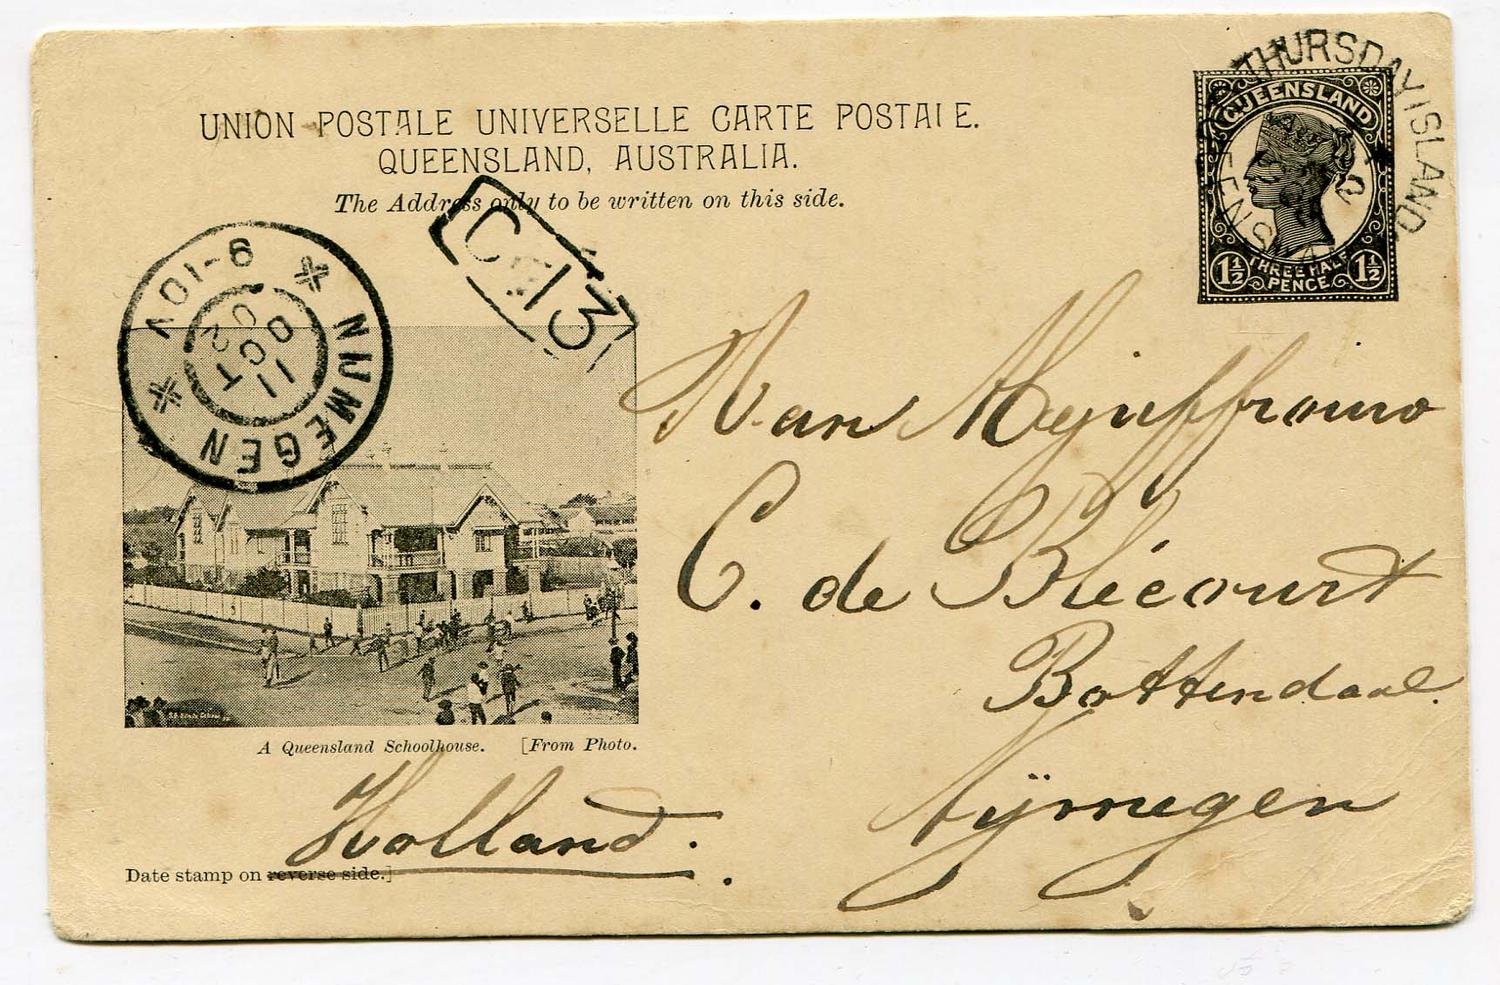 UNION POSTALE UNIVERSELLE CARTE POSTALE.
QUEENSLAND, AUSTRALIA.
The Address only to be written on this side.
THURSDAY ISLAND
QUEENSLAND
THREE HALF
PENCE
1½ 1½
C 13
NIJMEGEN
9-10V
11 OCT 02
Aan Mejuffrouw
C. de Blécourt
Bottendaal.
Nijmegen
A Queensland Schoolhouse. [From Photo.
Holland.
Date stamp on reverse side.]